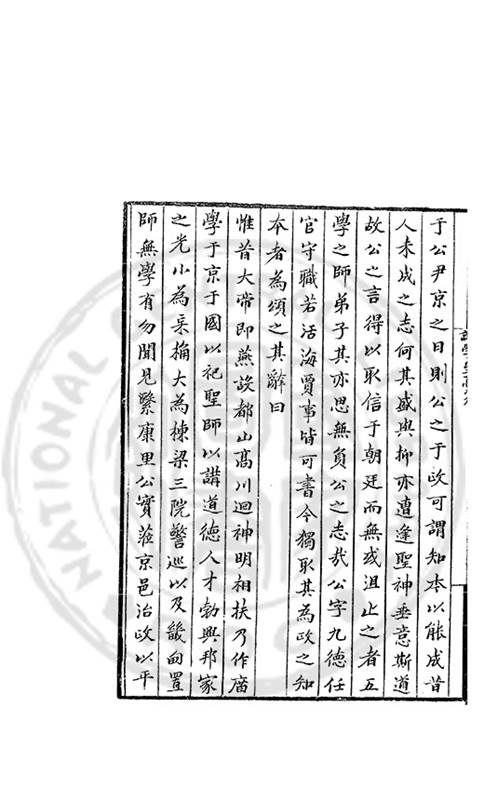 于公尹京之日則公之于政可謂知本以能成昔
人未成之志何其盛與抑亦遭逢聖神垂意斯道
故公之言得以取信于朝廷而無或沮止之者五
學之師弟子其亦思無負公之志哉公字九德任
官守職若活海賈事皆可書今獨取其為政之知
本者為頌之其辭曰
惟昔大帝即燕設都山髙川迴神明相扶乃作廣
學于京于國以祀聖師以講道德人才勃興邦家
之光小為采桷大為棟梁三院警巡以及畿甸置
師無學有勿聞見繄康里公實蒞京邑治政以平
NATIONAL